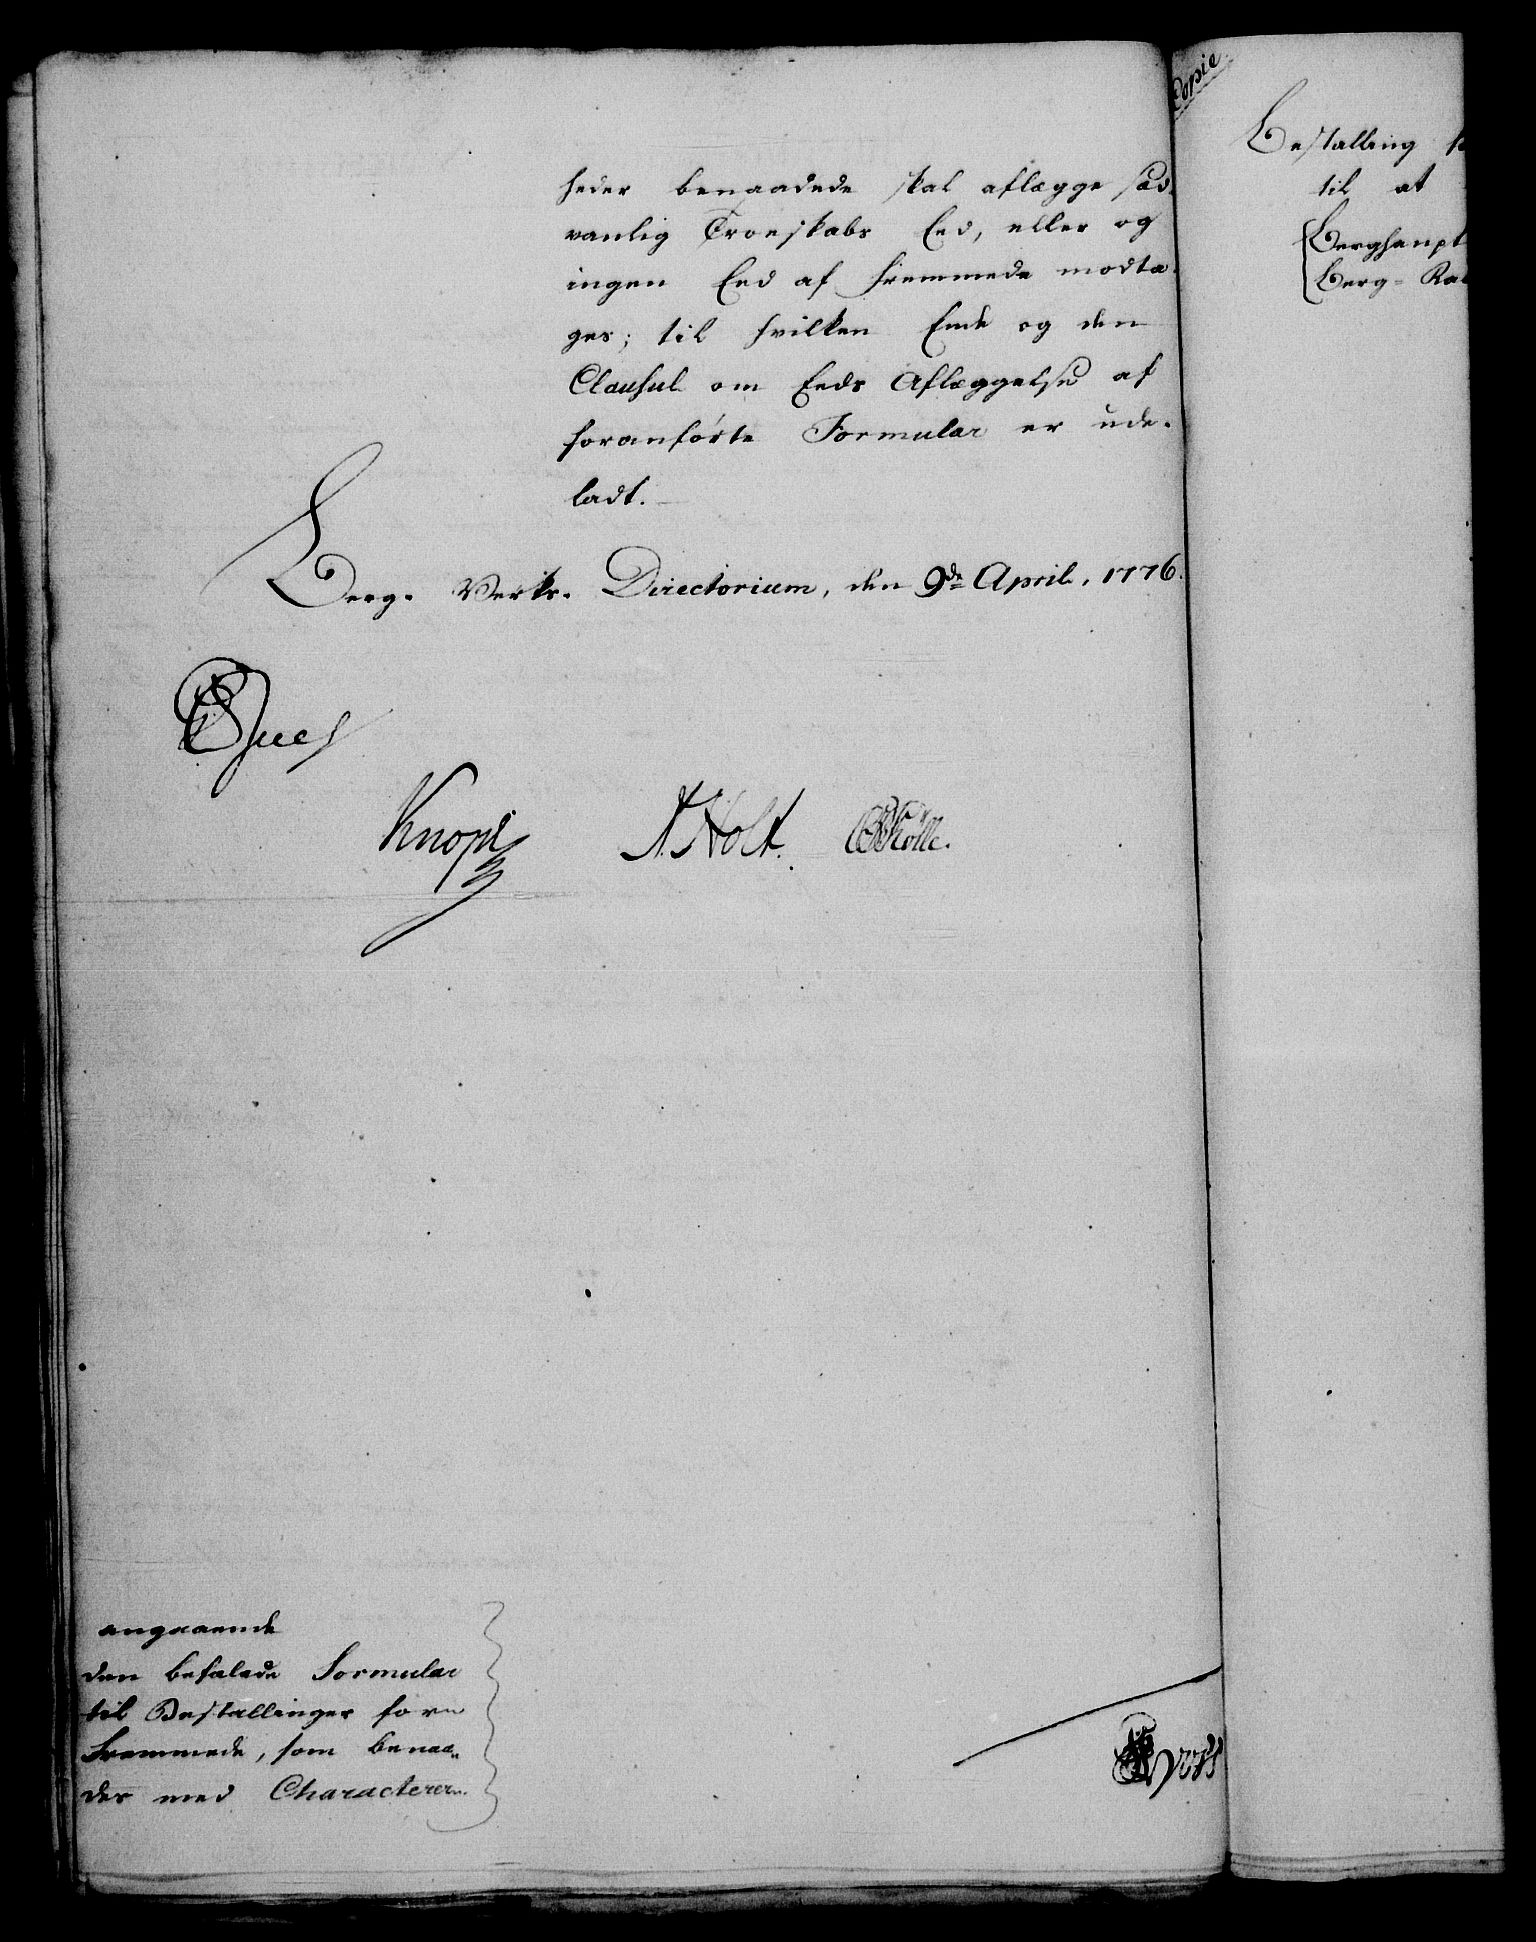 heder benaadede skal aflægge sæd-
vanlig Troeskabs Eed, eller og
ingen Eed af Fremmede modta-
ges; til hvilken Ende og den
Clausul om Eeds Aflæggelse af
foranførte Formular er ude-
ladt.
Berg-Verks-Directorium, den 9de April, 1776.
Knopf
A. Holt.
angaaende
den befalede Formular
til Bestallinger for
Fremmede, som benaa-
des med Characterer.
Copie
Bestalling
til at
Berghaupt
Berg-Ra